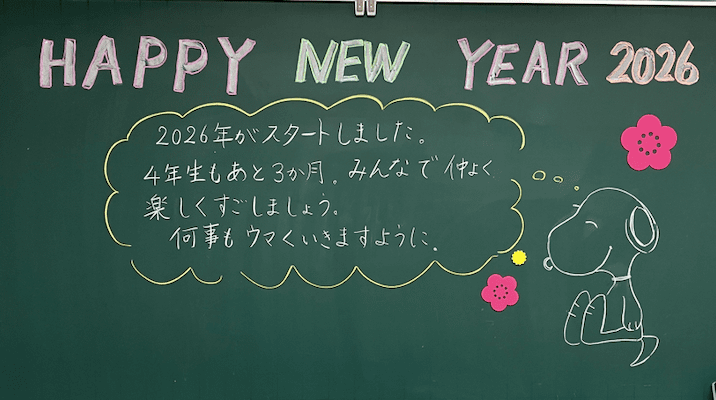 HAPPY NEW YEAR 2026
2026年がスタートしました。
4年生もあと3か月。みんなで仲よく
楽しくすごしましょう。
何事もウマくいきますように。